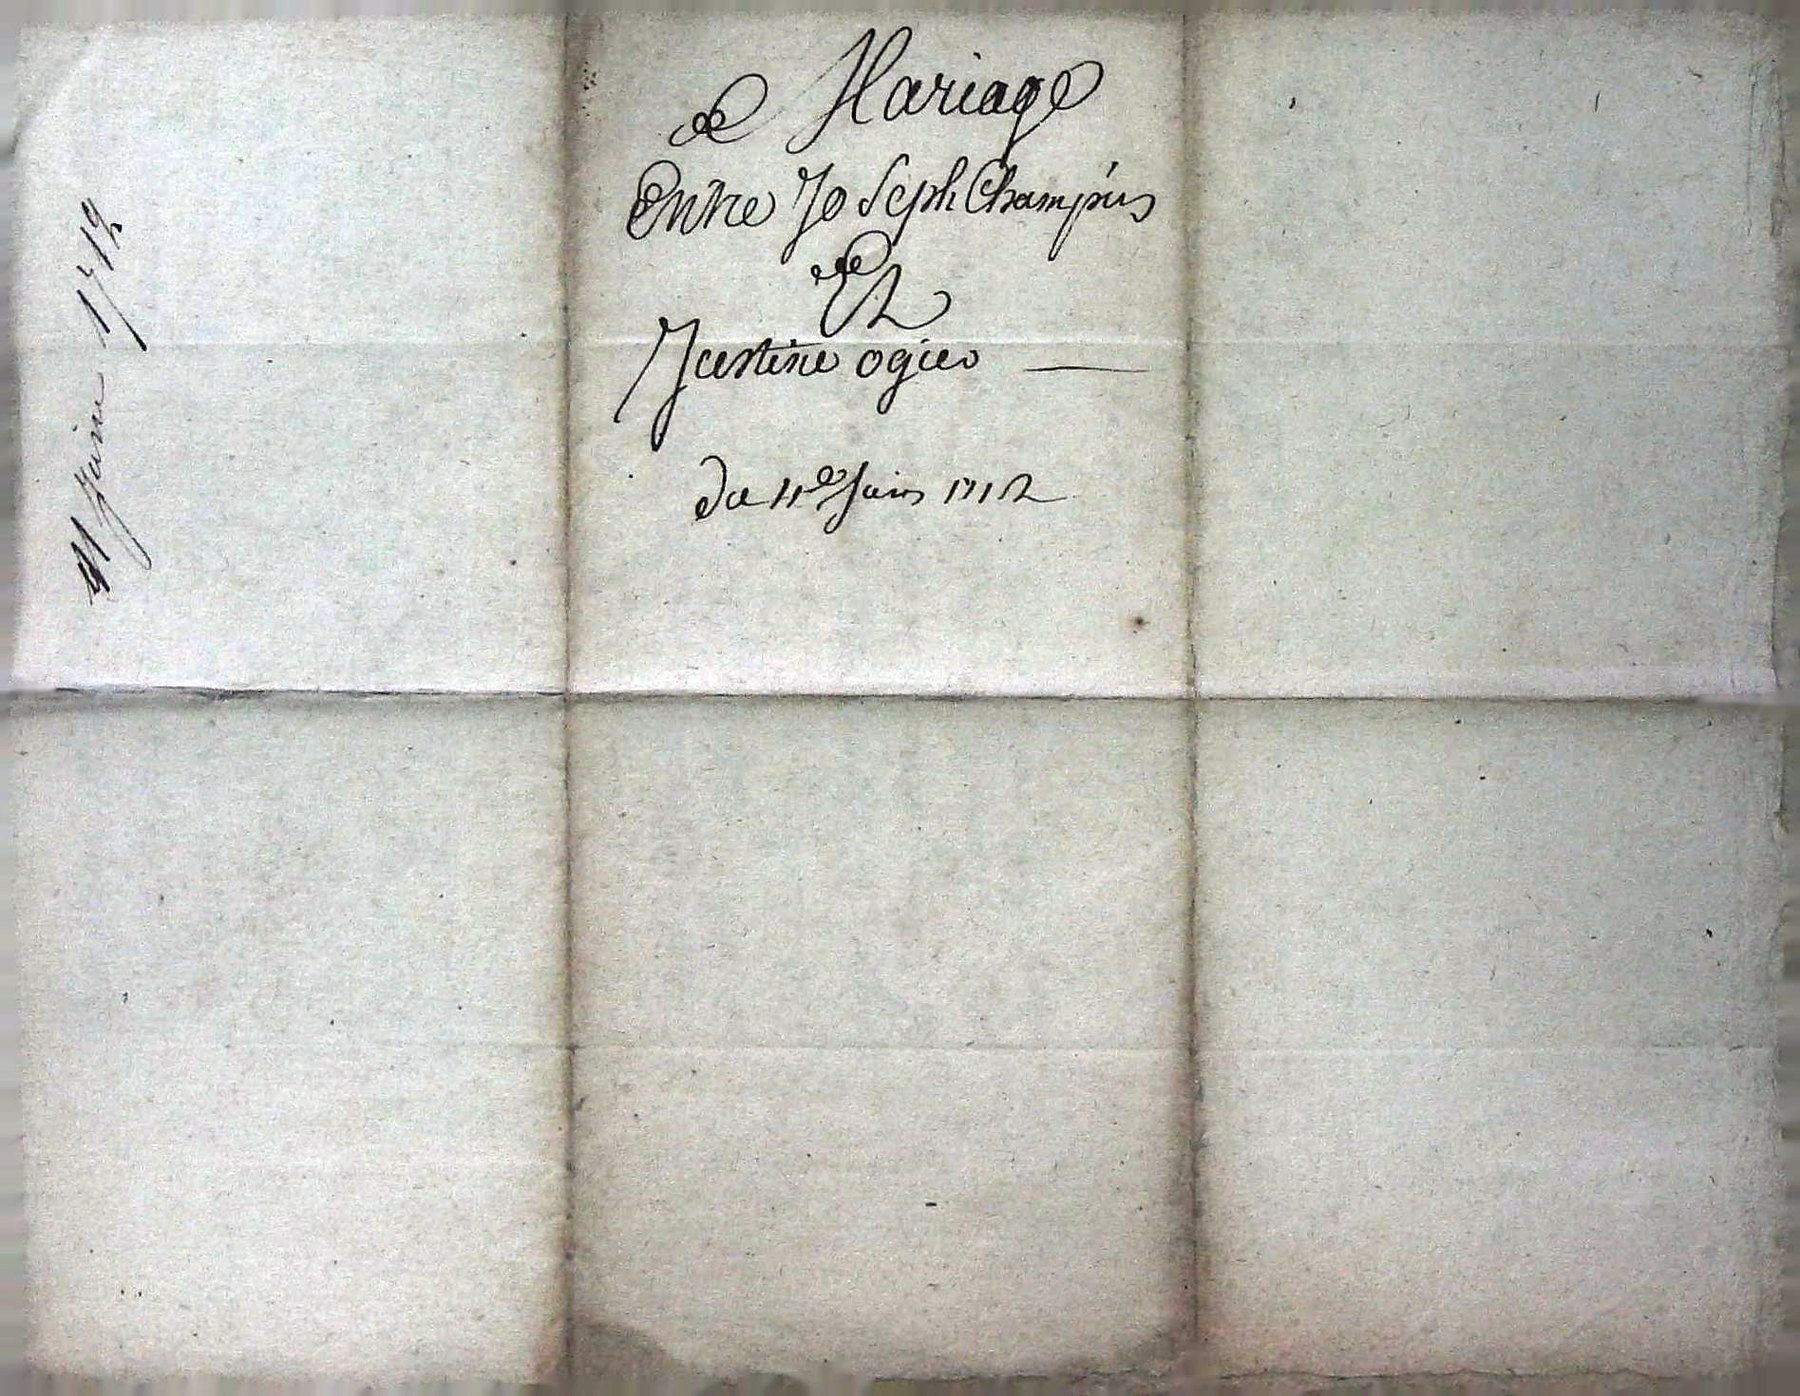 de Mariage
Entre Joseph Champins
Et
Justine ogier
du 11e Juin 1712
11 Juin 1712